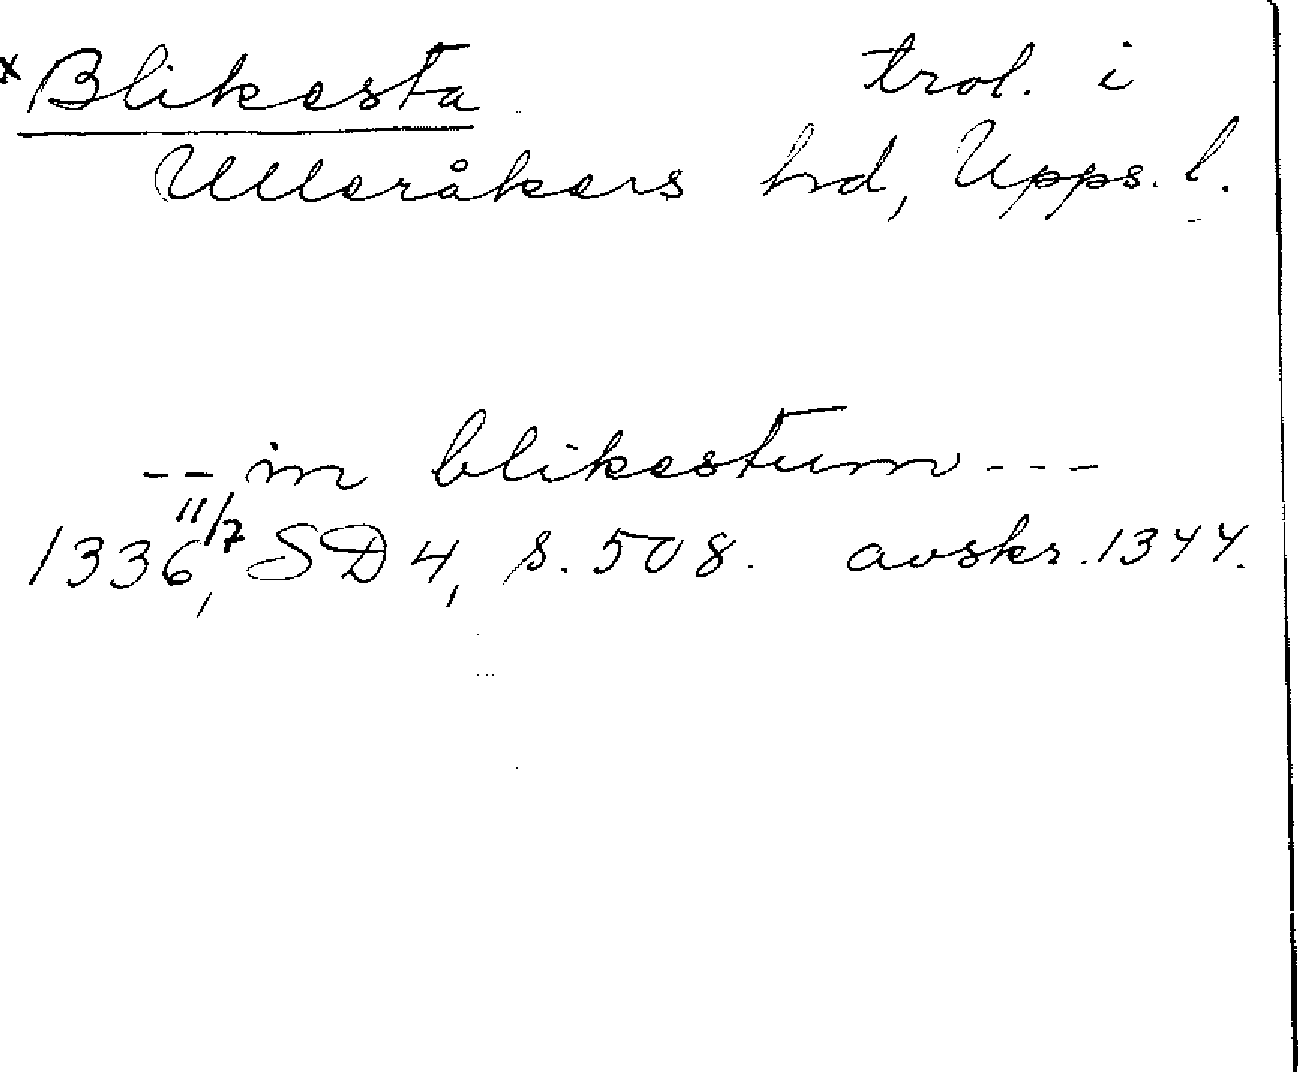 x Blikesta trol. i
Ulleråkers hd, Upps. l.
-- in blikestum ---
1336 11/7, SD 4, s. 508. avskr. 1344.